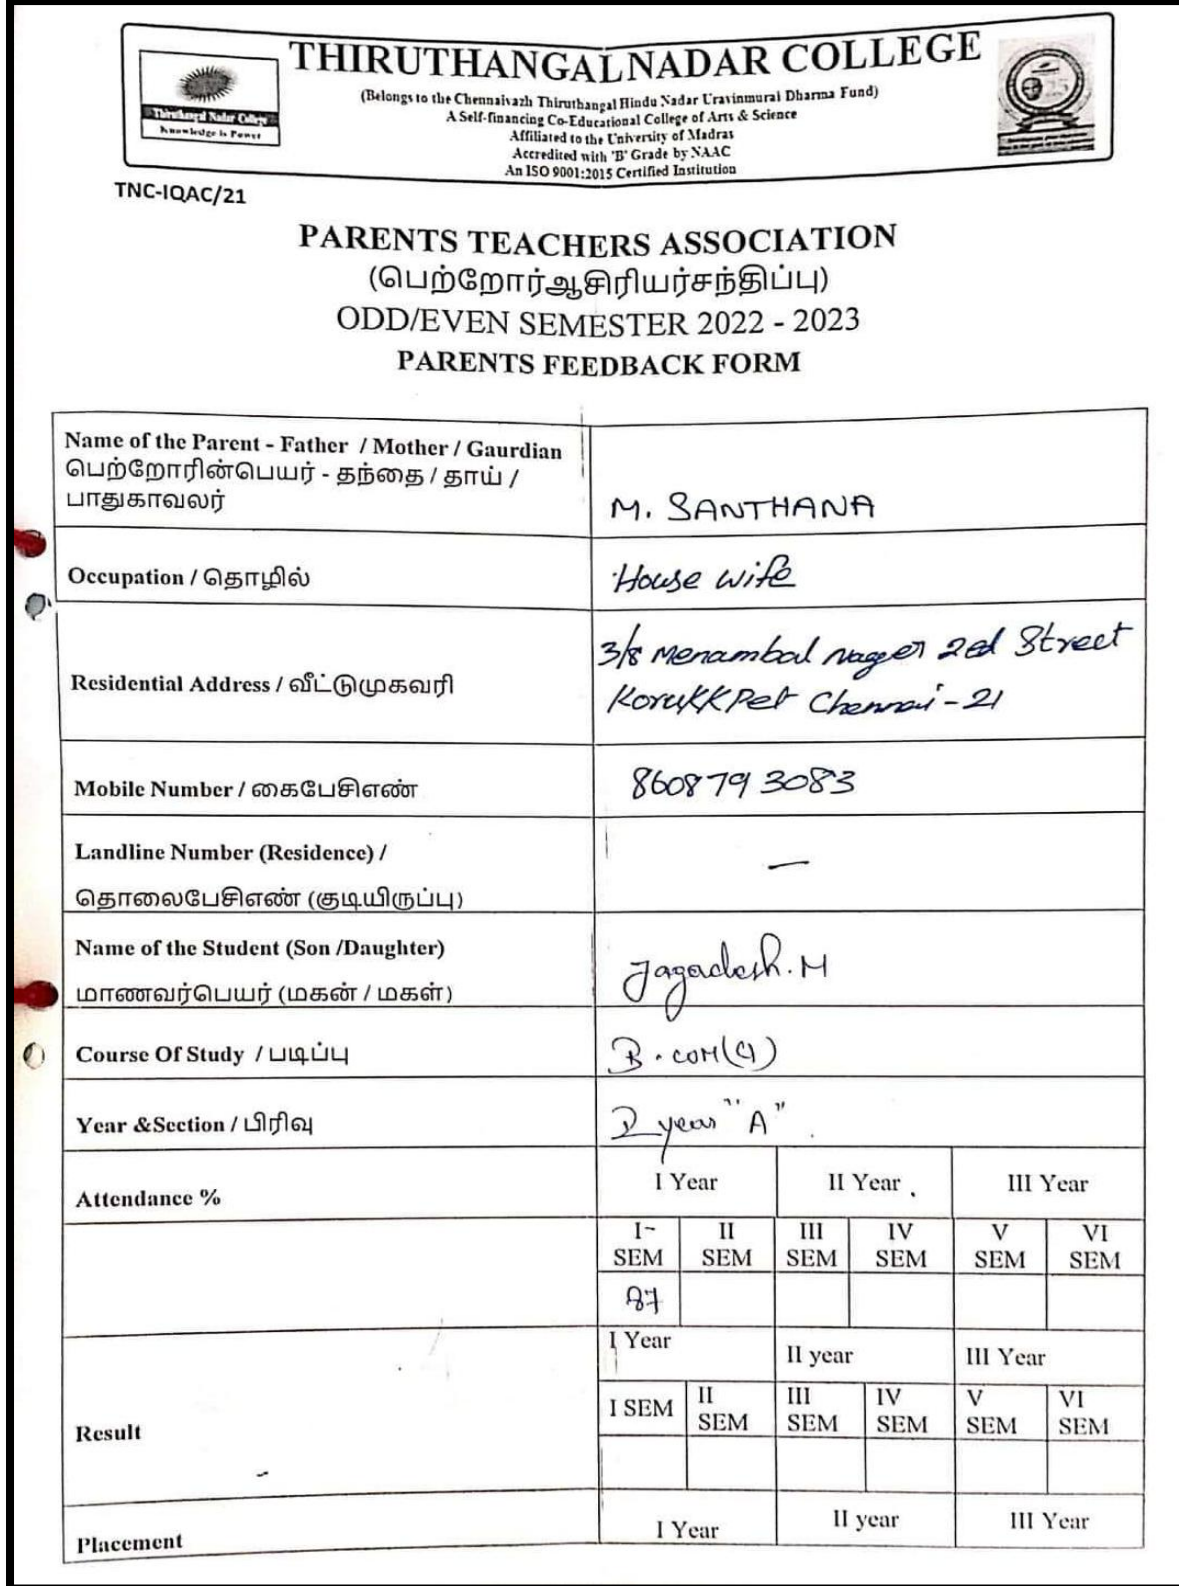 THIRUTHANGAL NADAR COLLEGE
(Belongs to the Chennaivazh Thiruthangal Hindu Nadar Uravinmurai Dharma Fund)
A Self-financing Co-Educational College of Arts & Science
Affiliated to the University of Madras
Accredited with 'B' Grade by NAAC
An ISO 9001:2015 Certified Institution
Thiruthangal Nadar College
Knowledge is Power
25
TNC-IQAC/21
PARENTS TEACHERS ASSOCIATION
(பெற்றோர்ஆசிரியர்சந்திப்பு)
ODD/EVEN SEMESTER 2022 - 2023
PARENTS FEEDBACK FORM
Name of the Parent - Father / Mother / Gaurdian
பெற்றோரின்பெயர் - தந்தை / தாய் /
பாதுகாவலர்
M. SANTHANA
Occupation / தொழில்
House wife
Residential Address / வீட்டுமுகவரி
3/8 Menambal nager 2ed Street
KorukkPet Chennai - 21
Mobile Number / கைபேசிஎண்
8608793083
Landline Number (Residence) /
தொலைபேசிஎண் (குடியிருப்பு)
—
Name of the Student (Son /Daughter)
மாணவர்பெயர் (மகன் / மகள்)
Jagadesh. M
Course Of Study / படிப்பு
B. COM
Year &Section / பிரிவு
I year "A"
Attendance %
I Year II Year III Year
I- II III IV V VI
SEM SEM SEM SEM SEM SEM
87
Result
I Year II year III Year
I SEM II SEM III SEM IV SEM V SEM VI SEM
Placement
I Year II year III Year